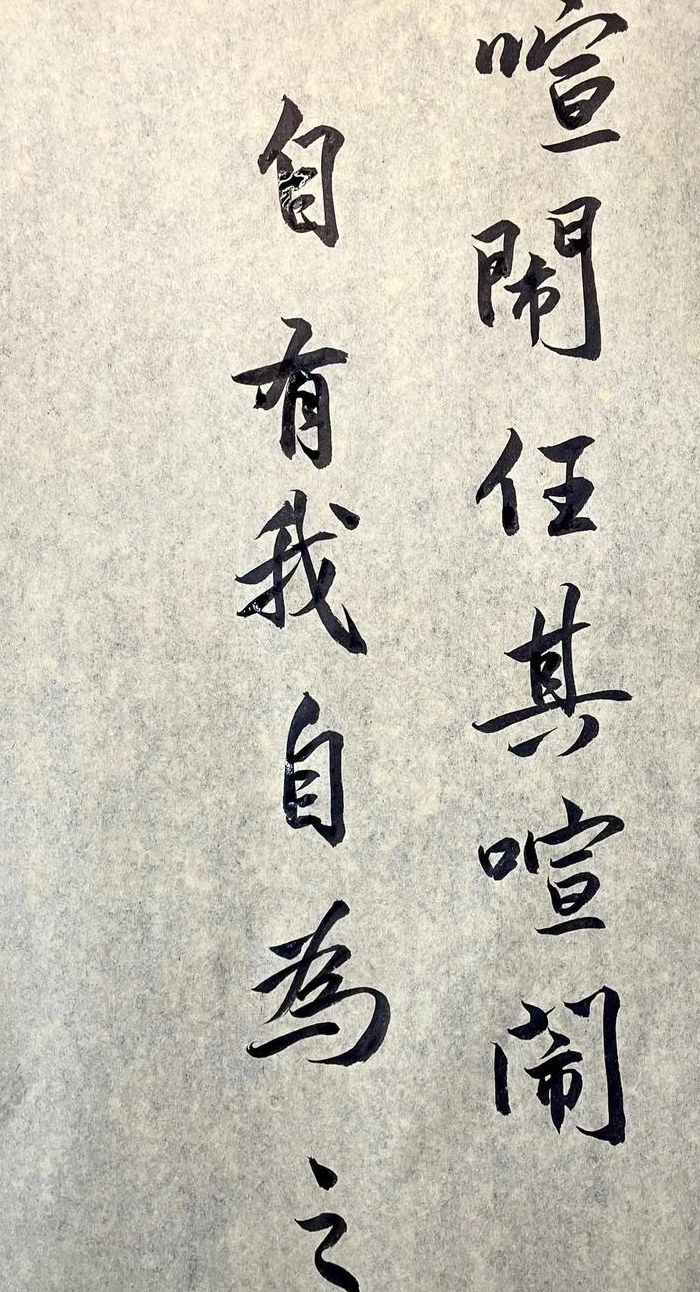 喧閙任其喧闹
自有我自為之